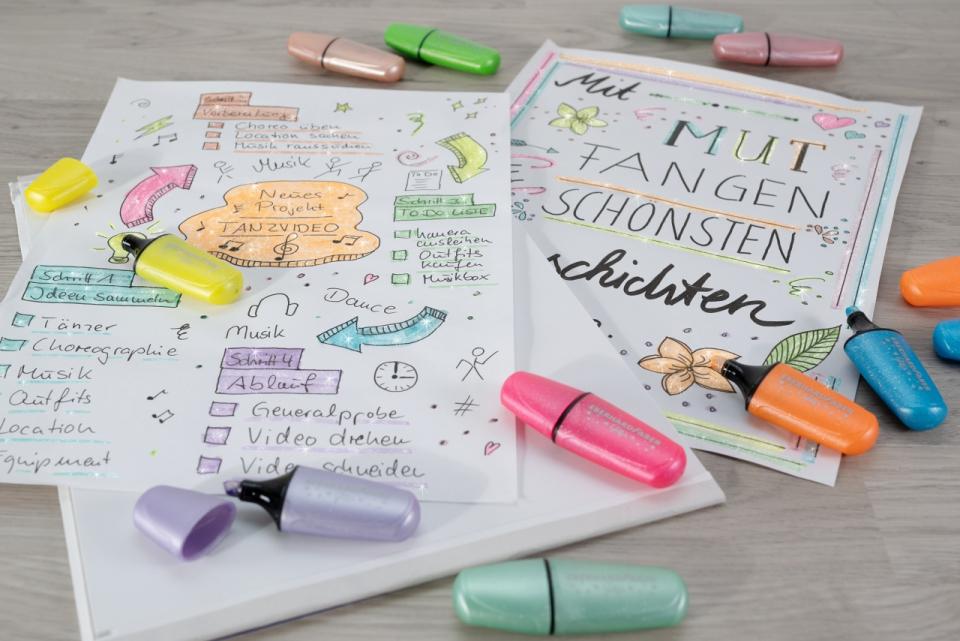 Vorbereitung
Choreo üben
Location suchen
Musik raussuchen
Musik
Neues
Projekt
TANZVIDEO
To Do
Schritt 3
TO DO LISTE
Kamera
ausleihen
Outfits
kaufen
Musikbox
Schritt 1
Ideen sammeln
Tänzer
Choreographie
Musik
Outfits
Location
Equipment
Dance
Musik
Schritt 4
Ablauf
Generalprobe
Video drehen
Video schneiden
#
Mit
MUT
FANGEN
SCHÖNSTEN
chichten
EBERHARD FABER
EBERHARD FABER